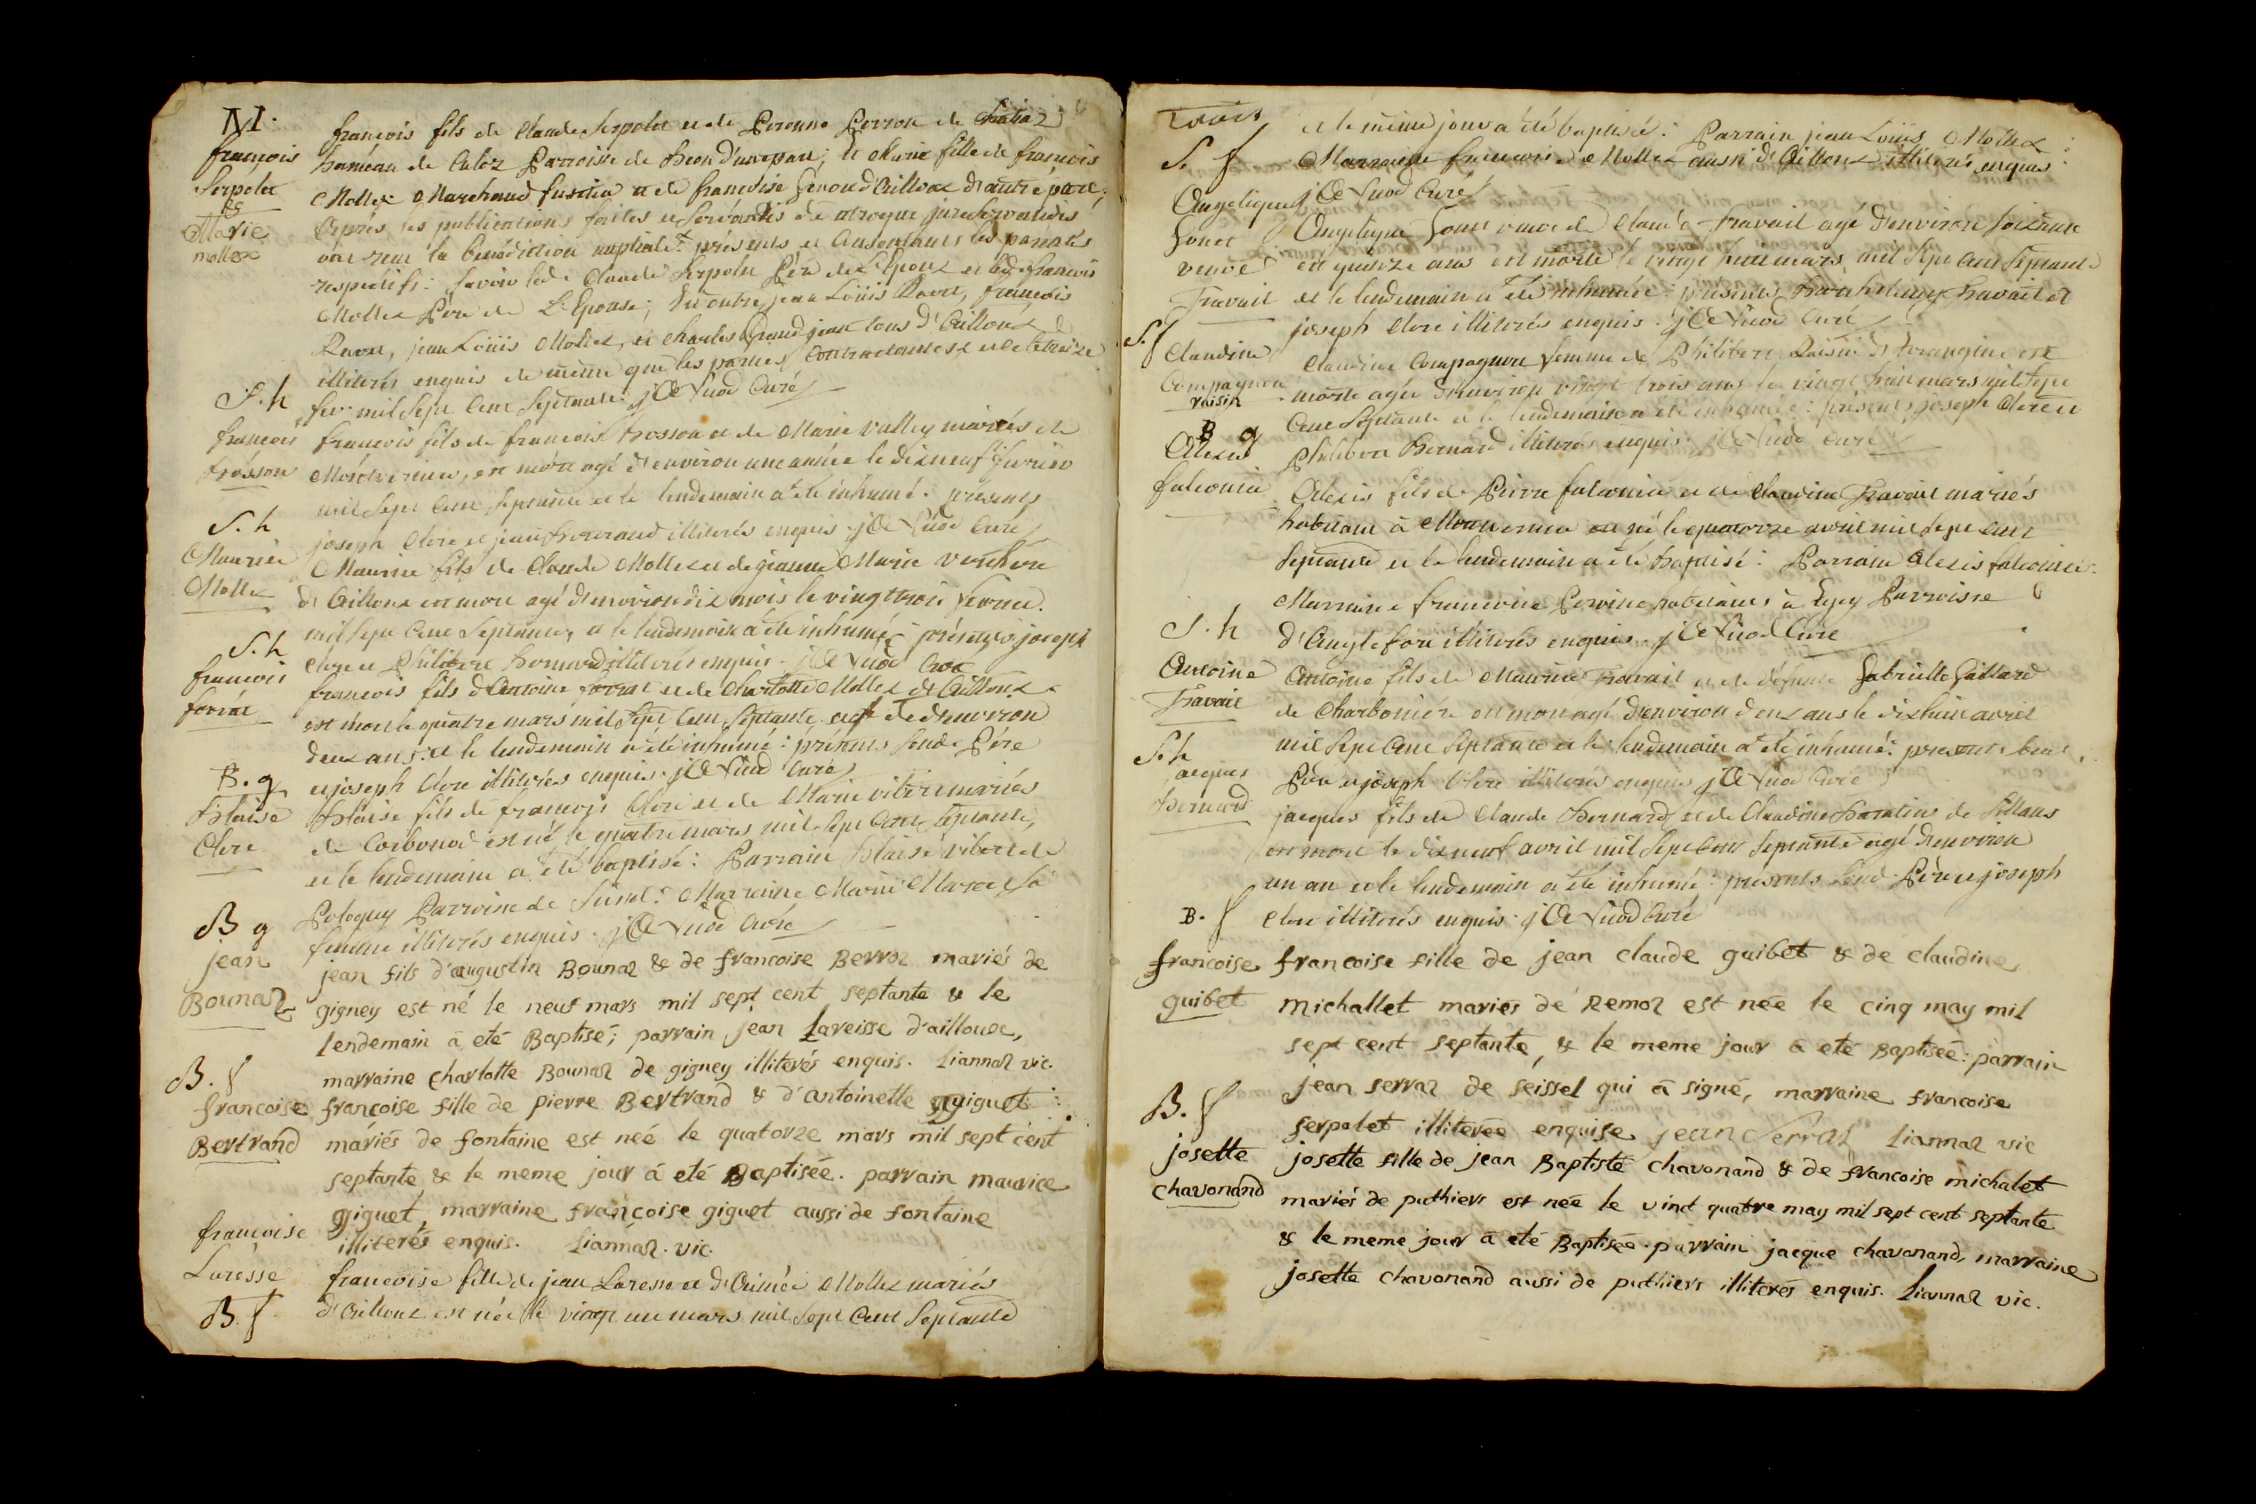 M.
françois
Serpolet
&
Marie
mollex
françois fils de Claude Serpolet et de Peronne Perron de
hameau de Culoz Parroisse de Beon d'une part; et Marie fille de françois
Mollex Marchand et de françoise Genoud d'Ailloux d'autre part;
Après les publications faites et servandis de utroque jure servandis
ont reçu la benédiction nuptiale: présents et Consentants les parents
respectifs: Savoir led. Claude Serpolet Père de L'Epoux et led. françois
Mollex Père de L'Epouse; En outre jean Loüis Ravet, françois
Ravet, jean Loüis Mollex, et Charles Grandjean tous d'Ailloux
illiterés enquis de même que les parties Contractantes et ce le treize
fev. mil Sept Cent Septante. curé
S. h
françois
Bosson
françois fils de françois Bosson et de Marie Valley mariés de
est mort agé d'environ une année le dixneuf fevrier
mil Sept Cent Septante et le lendemain a été inhumé. présents
joseph Clerc et jean illiterés enquis. Curé
S. h
Maurice
Mollex
Maurice fils de Claude Mollex et de jeanne Marie
d'Ailloux est mort agé d'environ dix mois le vingt trois fevrier
mil Sept Cent Septante, et le lendemain a été inhumé: présents joseph
Clerc et Philibert Bernard illiterés enquis. Curé
S. h
francois
ferrat
françois fils d'Antoine ferrat et de Charlotte Mollex d'Ailloux
est mort le quatre mars mil Sept Cent Septante agé de d'environ
deux ans: et le lendemain a été inhumé: présents Père
et joseph Clerc illiterés enquis. Curé
B. g
blaise
Clerc
blaise fils de françois Clerc et de Marie vibert mariés
de Corbonod est né le quatre mars mil Sept Cent Septante,
et le lendemain a été baptisé: Parrain blaise vibert de
Parroisse de Marraine Marie Sa
femme illiterés enquis. Curé
B g
jean
Bounaz
jean fils d'augustin Bounaz & de francoise Berroz mariés de
gigney est né le neuf mars mil sept cent septante & le
lendemain à eté Baptisé; parrain jean Lareisse d'ailloux,
marraine charlotte Bounaz de gigney illiterés enquis. Liannaz vic.
B. f
francoise
Bertrand
françoise fille de pierre Bertrand & d'antoinette giguet
mariés de fontaine est neé le quatorze mars mil sept cent
septante & le meme jour á eté Baptisée. parrain maurice
giguet, marraine françoise giguet aussi de fontaine
illiterés enquis. Liannaz. vic.
françoise
Laresse
B f
francoise fille de jean Laresse et d'Aimée Mollex mariés
d'Ailloux est née le vingt un mars mil Sept Cent Septante
Trois
et le même jour a été baptisée: Parrain jean Loüis Mollex:
Marraine francoise Mollex aussi d'Ailloux illiterés enquis:
Curé
S. f
Angelique
Gonet
veuve
Travail
Angelique Gonet veuve de Claude Travail agé d'environ soixante
et quinze ans est morte le vingt huit mars mil Sept Cent Septante
et le lendemain a été inhumée: présents Travail et
joseph Clerc illiterés enquis. Curé
S. f
Claudine
Compagnon
raisin
Claudine Compagnon femme de Philibert Raisin d' est
morte agée d'environ vingt trois ans le vingt huit mars mil Sept
Cent Septante et le lendemain a été inhumée: présents joseph Clerc et
Philibert Bernard illiterés enquis. Curé
B g
Alexis
falconier
Alexis fils de Pierre falconier et de Claudine Travail mariés
habitant à est né le quatorze avril mil Sept Cent
Septante et le lendemain a été baptisé: Parrain Alexis falconier
Marraine francoise habitants à Parroisse
d'Anglefort illiterés enquis. Curé
S. h
Antoine
Travail
Antoine fils de Maurice Travail et de défunte Gabrielle Gaillard
de Charbonière est mort agé d'environ deux ans le dixhuit avril
mil Sept Cent Septante et le lendemain a été inhumé: présents
Père et joseph Clerc illiterés enquis Curé
S. h
jacques
Bernard
jacques fils de Claude Bernard et de Claudine de Sillans
est mort le dixneuf avril mil Sept Cent Septante agé d'environ
un an et le lendemain a été inhumé: présents Père et joseph
Clerc illiterés enquis. Curé
B. f
francoise
guibet
francoise fille de jean claude guibet & de claudine
michallet mariés de Remoz est née le cinq may mil
sept cent septante, & le meme jour à eté Baptisée: parrain
jean serraz de seissel qui à signé, marraine francoise
serpolet illiterée enquise jean Serraz Liannaz vic
B. f
josette
chavonand
josette fille de jean Baptiste chavonand & de francoise michalet
mariés de puthiers est née le vint quatre may mil sept cent septante
& le meme jour à eté Baptisée. parrain jacque chavonand, marraine
josette chavonand aussi de puthiers illiterés enquis. Liannaz vic.